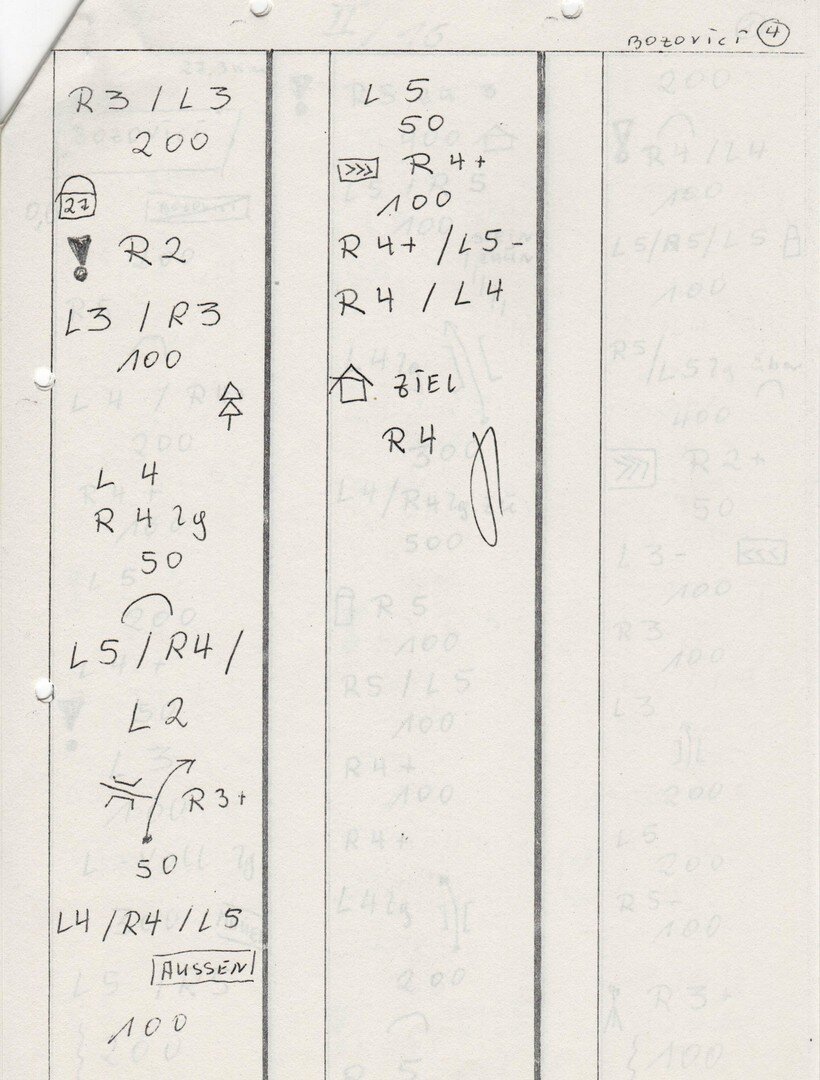 BOZOVICI 4
R3/L3
200
21
! R2
L3/R3
100
L4
R4 lg
50
L5/R4/
L2
R3+
50
L4/R4/L5
AUSSEN
100
L5
50
>>> R4+
100
R4+/L5-
R4/L4
ZIEL
R4